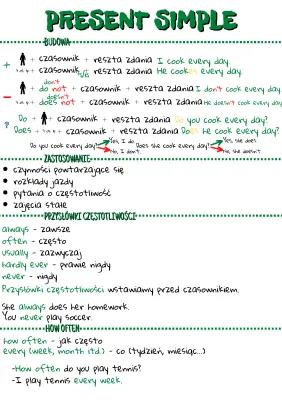 PRESENT SIMPLE
BUDOWA
+ + czasownik + reszta zdania I cook every day.
+ czasownik + reszta zdania He cookes every day.
s/es
don't
- do not + czasownik + reszta zdania I don't cook every day.
doesn't
does not + czasownik + reszta zdania He doesn't cook every day
? Do + + czasownik + reszta zdania Do you cook every day?
Does + + czasownik + reszta zdania Does He cook every day?
Do you cook every day? Yes, I do. Does she cook every day? Yes, she does.
No, I don't. No, she doesn't.
ZASTOSOWANIE
• czynności powtarzające się
• rozkłady jazdy
• pytania o częstotliwość
• zajęcia stałe
PRZYSŁÓWKI CZĘSTOTLIWOŚCI
always - zawsze
often - często
usually - zazwyczaj
hardly ever - prawie nigdy
never - nigdy
Przysłówki częstotliwości wstawiamy przed czasownikiem.
She always does her homework.
You never play soccer.
HOW OFTEN
how often - jak często
every (week, month itd.) - co (tydzień, miesiąc...)
-How often do you play tennis?
-I play tennis every week.